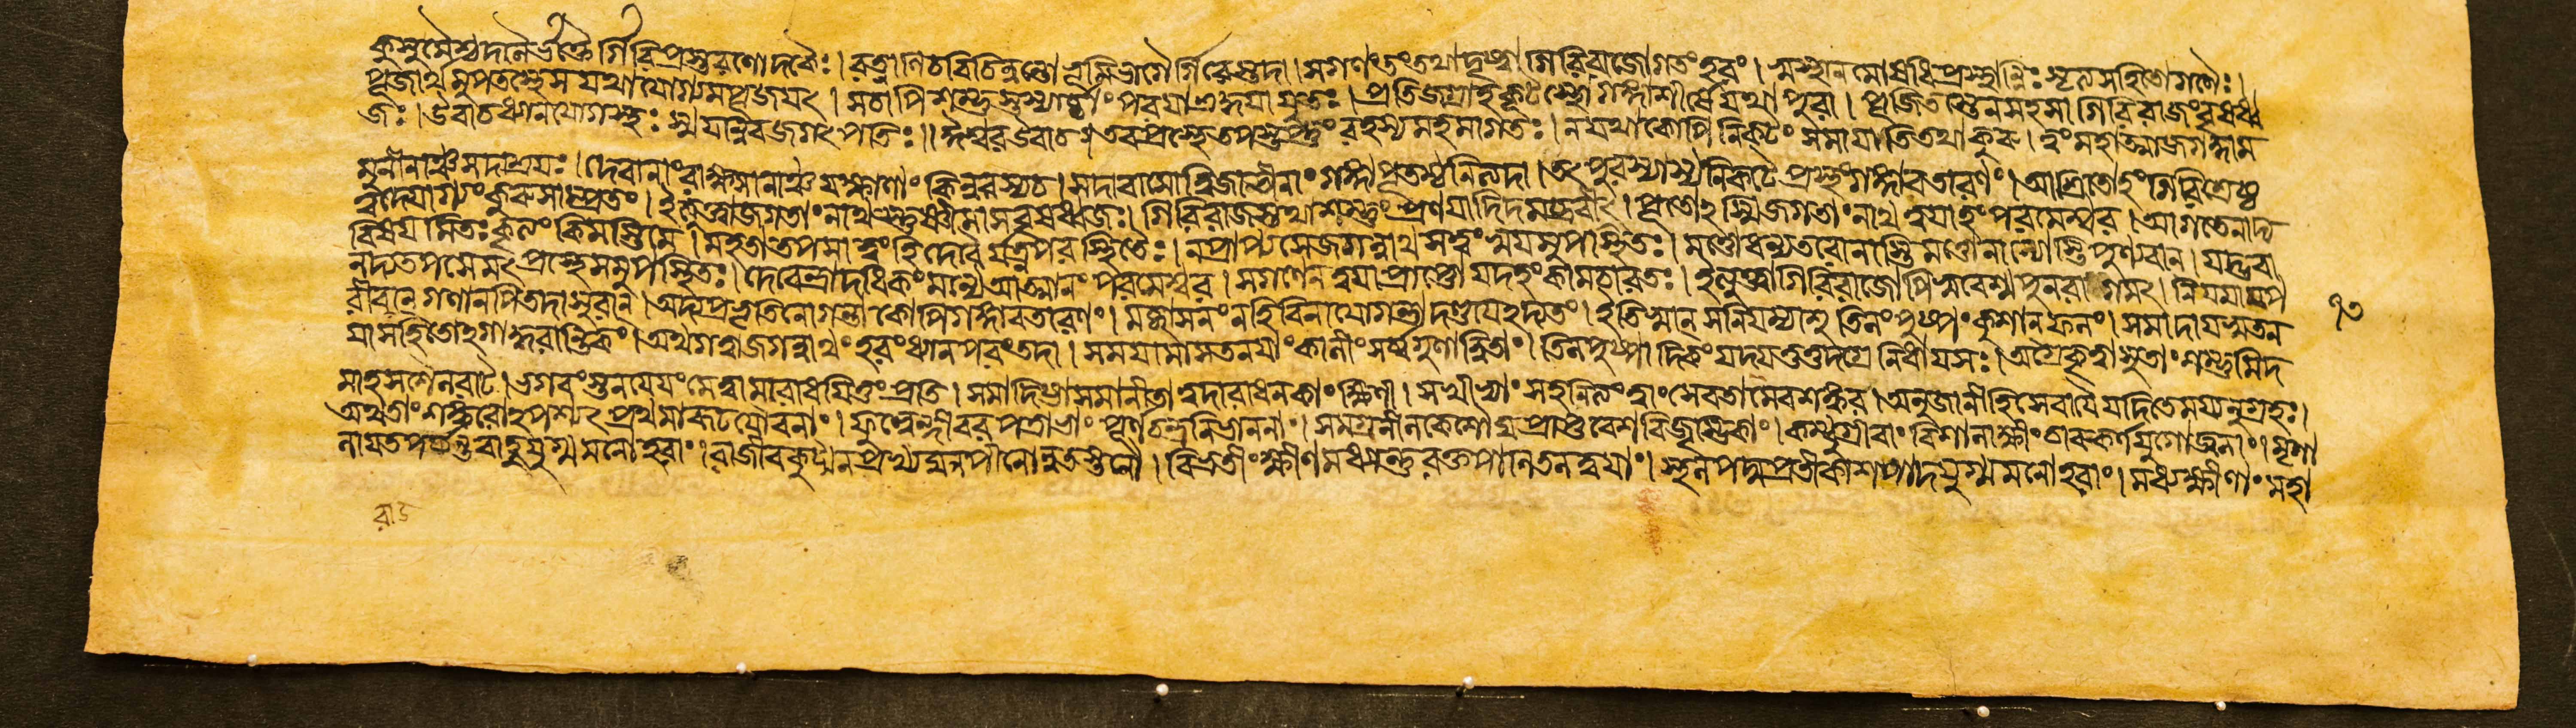 কুসুমৈশ্চদনৈর্ভক্তৈর্গিরিপ্রস্তরণোদবৈঃ। সগণংতংতথাদৃষ্ট্বা গিরিরাজোগতংহরং।
পূজার্থমুপতস্থেস যথাযোগ্যমপূজয়ৎ। সচাপিশম্ভুস্তস্যার্চ্চাং পরয়া যুতঃ। প্রতিজগ্রাহকূটস্থো গঙ্গাশীর্ষেযথাপুরা। পূজিতস্তেনসহসা গিরিরাজংবৃষধ্ব
জঃ। উবাচধ্যানযোগস্থঃ স্ময়ন্নিবজগৎপতিঃ।। ঈশ্বরউবাচ।। তবপ্রস্থেতপস্তপ্তুং রহস্যমহমাগতঃ। নযথাকোপিনিকটং সমায়াতিতথাকুরু। ত্বংমহাত্মাজগদ্ধাম
মুনীনাঞ্চসদাশ্রয়ঃ। দেবানাংরাক্ষসানাঞ্চ যক্ষাণাং কিন্নরস্যচ। সদাবাসোদ্বিজাতীনাং গঙ্গাপূতশ্চনিত্যদা। তৎপুরস্যাস্যনিকটে প্রস্থংগঙ্গাবতারণং। আশ্রিতোহংগিরিশ্রেষ্ঠ
ত্বদ্যোগ্যংকুরুসাম্প্রতং। ইত্যুক্ত্বাজগতাংনাথস্তূষ্ণীমাসবৃষধ্বজঃ। গিরিরাজস্তথাশম্ভুং প্রণয়াদিদমব্রবীৎ। পূতোহস্মিজগতাংনাথ ত্বয়াহংপরমেশ্বর। আগতেনাদ্য
বিষয়মিতঃকৃত্যং কিমস্তিমে। মহতাতপসাত্বংহি দেবৈর্যত্নপরস্থিতৈঃ। নপ্রাপ্যসেজগন্নাথ সত্বংস্বয়মুপাস্থিতঃ। মত্তোধন্যতরোনাস্তি মত্তোনান্যোস্তিপুণ্যবান। যদ্ভবা
নদ্যতপসেমৎপ্রস্থেসমুপস্থিতঃ। দেবেন্দ্রাদধিকংমন্যে আত্মানং পরমেশ্বর। সগণেনত্বয়াপ্রাপ্তো যদহং কামচারতঃ। ইত্যুক্ত্বাগিরিরাজোপি স্ববেশ্মপুনরাগমৎ। নিয়মায়াপ
রীবারান গণানপিতদাসুরান। অদ্যপ্রভৃতিনোগন্তা কোপিগঙ্গাবতারণং। মচ্ছাসনং নহিবিনাযোগন্তা দণ্ডয়েহদ্যতং। ইতিস্বান সনিয়ম্যাশু তিলংপুষ্পং কুশানফলং। সমাদায়স্বতন
য়াসহিতোহগাদ্ধরান্তিকং। অথগত্বাজগন্নাথং হরংধ্যানপরংতদা। সময়ামাসতনয়াং কালীং সর্ব্বগুণান্বিতাং। তিলপুষ্পাদিকংযদ্যত্তত্তদগ্রেনিধায়সঃ। অগ্রেকৃত্বাসুতাং শম্ভুমিদ
মাহসশৈলরাট। ভগবংস্তনয়েয়ংমে ত্বামারাধয়িতুংপ্রতি। সমাদিষ্টাসমানীতা ত্বদারাধনকাংক্ষিণী। সখীভ্যাং সহনিত্যংত্বাং সেবতামেবশঙ্কর। অনুজানীহিসেবায়ৈ যদিতেময্যনুগ্রহঃ।
অথতাংশঙ্করোহপশ্যৎ প্রথমারূঢযৌবনাং। ফুল্লেন্দীবরপত্রাভাং পূর্ণচন্দ্রনিভাননাং। সমগ্রনীলকেশৌঘ প্রাপ্তবেশবিজৃম্ভিকাং। কম্বুগ্রীবাং বিশালাক্ষীং চারুকর্ণযুগোজ্জ্বলাং। মৃণা
লায়তপর্য্যন্তবাহুযুগ্মমনোহরাং। রাজীবকুট্মলপ্রখ্য ঘনপীনোন্নতস্তনৌ। বিভ্রতীং ক্ষীণমধ্যান্তু রক্তপাণিতলদ্বয়াং। স্থলপদ্মপ্রতীকাশপাদযুগ্মমনোহরাং। মধ্যক্ষীণাং মহা